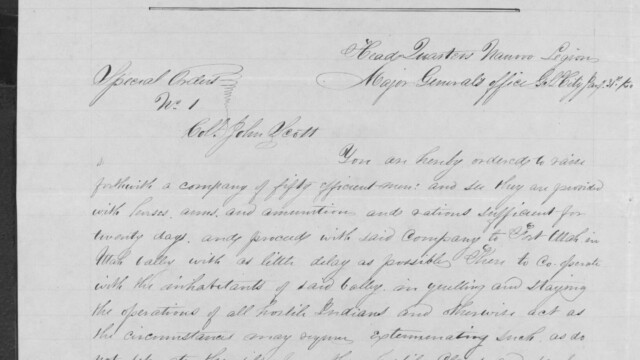 Head Quarters Nauvoo Legion
Special Orders
Major General's office G.S.L. City Jany. 31st 1850
No 1
Col. John Scott
You are hereby ordered to raise
forthwith a company of fifty efficient men: and see they are provided
with horses, arms, and ammunition and rations sufficient for
twenty days, and proceed with said Company to Fort Utah in
Utah Valley with as little delay as possible, There to Co-operate
with the inhabitants of said Valley in quelling and staying
the operations of all hostile Indians and otherwise act as
the circumstances may require exterminating such, as do
not